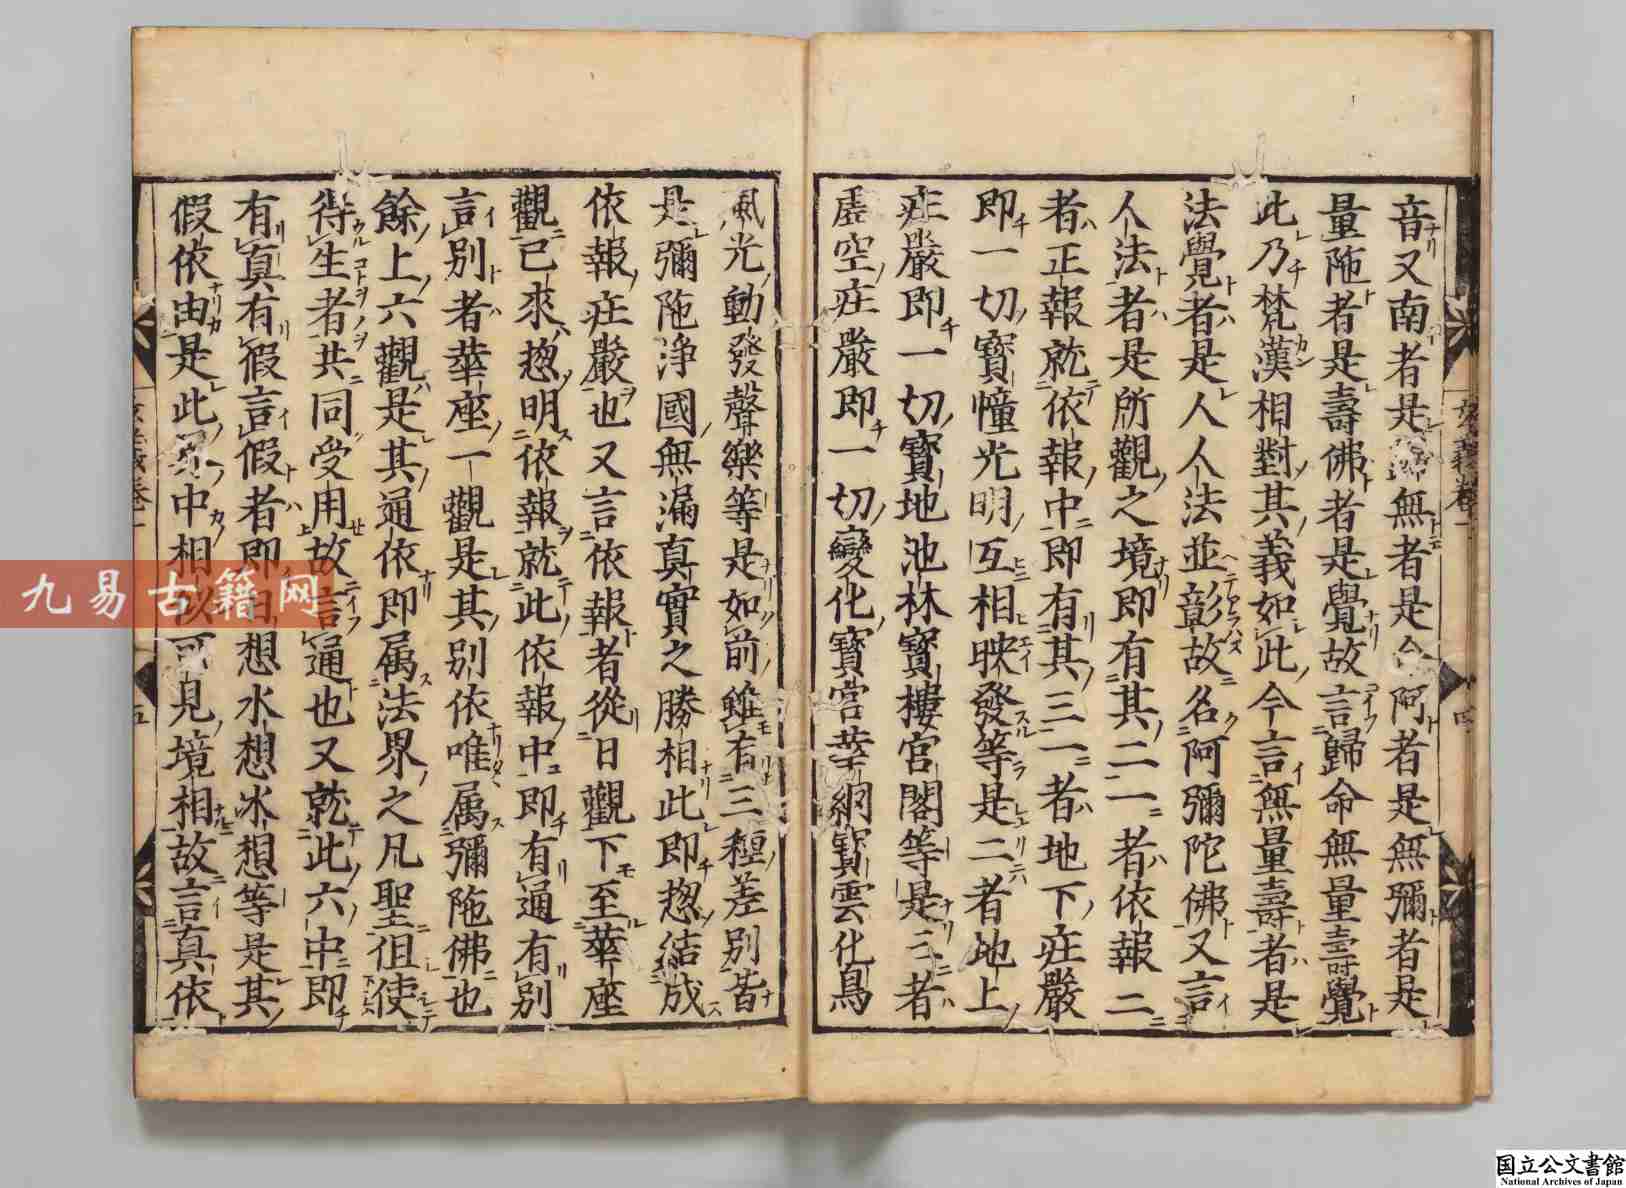 音又南者是歸無者是命阿者是無彌者是
量陁者是壽佛者是覺故言歸命無量壽覺
此乃梵漢相對其義如此今言無量壽者是
法覺者是人人法並彰故名阿彌陀佛又言
人法者是所觀之境即有其二一者依報二
者正報就依報中即有其三一者地下疘嚴
即一切寶幢光明互相映發等是二者地上
疘嚴即一切寶地池林寶樓宮閣等是三者
虛空疘嚴即一切變化寶宮華網寶雲化鳥
風光動發聲樂等是如前雖有三種差別皆
是彌陁淨國無漏真實之勝相此即惣結成
依報疘嚴也又言依報者從日觀下至華座
觀已來惣明依報就此依報中即有通有別
言別者華座一觀是其別依唯属彌陁佛也
餘上六觀是其通依即属法界之凡聖但使
得生者共同受用故言通也又就此六中即
有真有假言假者即日想水想氷想等是其
假依由是此界中相似可見境相故言真依
九易古籍网
国立公文書館
National Archives of Japan